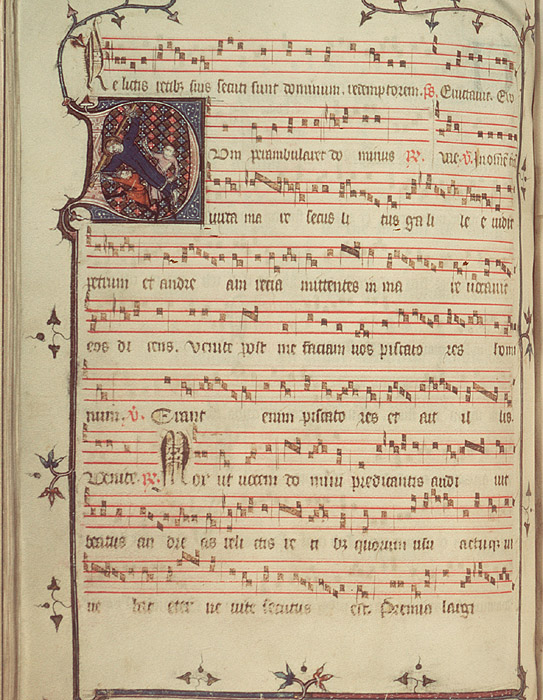 Relictis retibus suis secuti sunt dominum redemptorem. ps. Euouae. Euo
Dum perambularet do minus pe. uae. v. In omnem
iuxta ma re secus li tus ga li le e uidit
petrum et andre am recia mittentes in ma re uocauit
eos di cens. Venite post me faciam uos piscato res homi
num. v. Erant enim piscato res et ait il lis.
Venite. pe. Mox ut uocem do mini predicantis audi uit
beatus an dre as reli ctis re ti bz quorum usu actuqz ui
ue bat eter ne uite secutus est. Premia largi